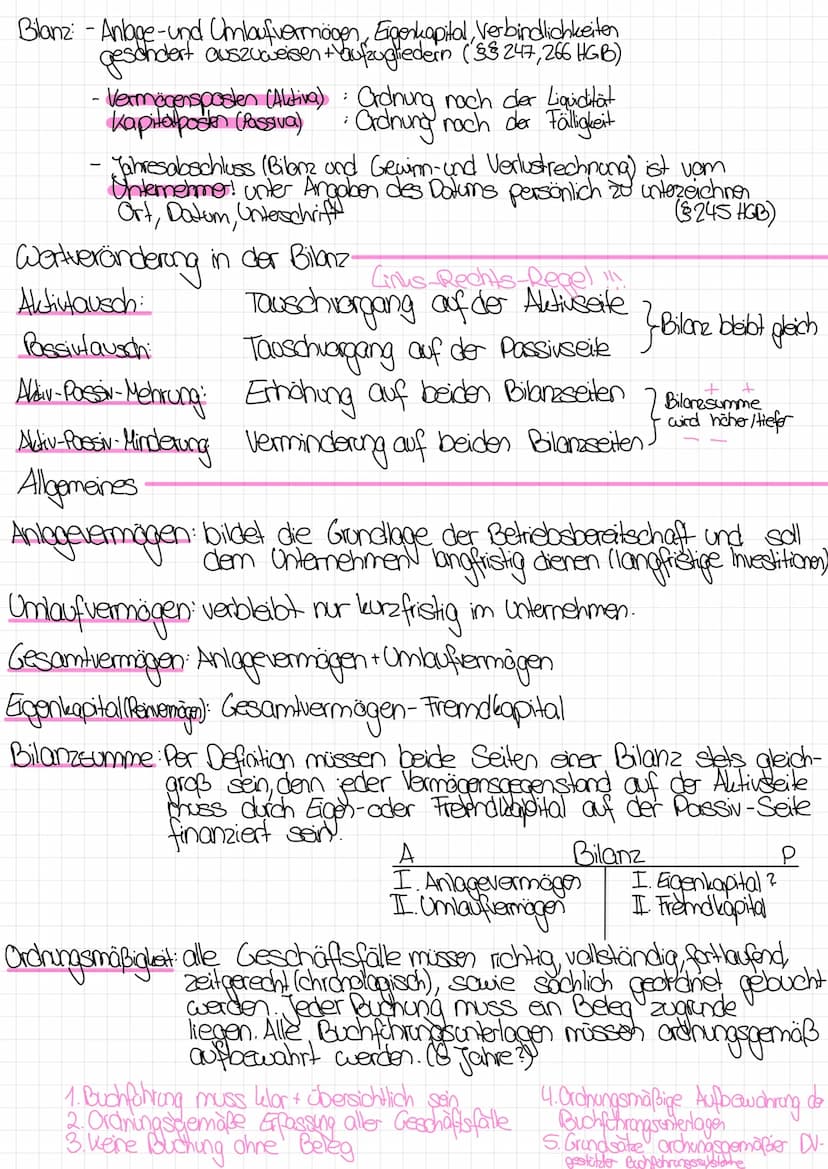 Bilanz: - Anlage- und Umlaufvermögen, Eigenkapital, Verbindlichkeiten
gesondert auszuweisen + aufzugliedern (§§ 247, 266 HGB)
- Vermögensposten (Aktiva) : Ordnung nach der Liquidität
Kapitalposten (Passiva) : Ordnung nach der Fälligkeit
- Jahresabschluss (Bilanz und Gewinn- und Verlustrechnung) ist vom
Unternehmer! unter Angaben des Datums persönlich zu unterzeichnen
Ort, Datum, Unterschrift (§ 245 HGB)
Wertveränderung in der Bilanz
Links-Rechts-Regel !!!
Aktivtausch: Tauschvorgang auf der Aktivseite
Bilanz bleibt gleich
Passivtausch: Tauschvorgang auf der Passivseite
Aktiv-Passiv-Mehrung: Erhöhung auf beiden Bilanzseiten
+ +
Bilanzsumme
wird höher/tiefer
- -
Aktiv-Passiv-Minderung Verminderung auf beiden Bilanzseiten
Allgemeines
Anlagevermögen: bildet die Grundlage der Betriebsbereitschaft und soll
dem Unternehmen langfristig dienen (langfristige Investitionen)
Umlaufvermögen: verbleibt nur kurzfristig im Unternehmen.
Gesamtvermögen: Anlagevermögen + Umlaufvermögen
Eigenkapital (Reinvermögen): Gesamtvermögen - Fremdkapital
Bilanzsumme: Per Definition müssen beide Seiten einer Bilanz stets gleich-
groß sein, denn jeder Vermögensgegenstand auf der Aktivseite
muss durch Eigen- oder Fremdkapital auf der Passiv-Seite
finanziert sein.
A Bilanz P
I. Anlagevermögen I. Eigenkapital ?
II. Umlaufvermögen II. Fremdkapital
Ordnungsmäßigkeit: alle Geschäftsfälle müssen richtig, vollständig, fortlaufend,
zeitgerecht (chronologisch), sowie sachlich geordnet gebucht
werden. Jeder Buchung muss ein Beleg zugrunde
liegen. Alle Buchführungsunterlagen müssen ordnungsgemäß
aufbewahrt werden. (8 Jahre?)
1. Buchführung muss klar + übersichtlich sein
2. Ordnungsgemäße Erfassung aller Geschäftsfälle
3. Keine Buchung ohne Beleg
4. Ordnungsmäßige Aufbewahrung der
Buchführungsunterlagen
5. Grundsätze ordnungsgemäßer DV-
gestützter Buchführungssysteme